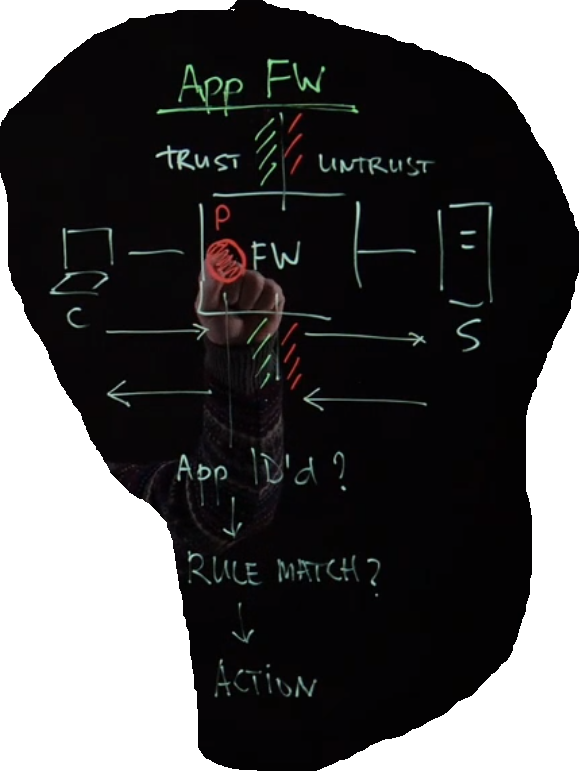 App FW
TRUST UNTRUST
P
FW
C
S
App ID'd?
RULE MATCH?
ACTION